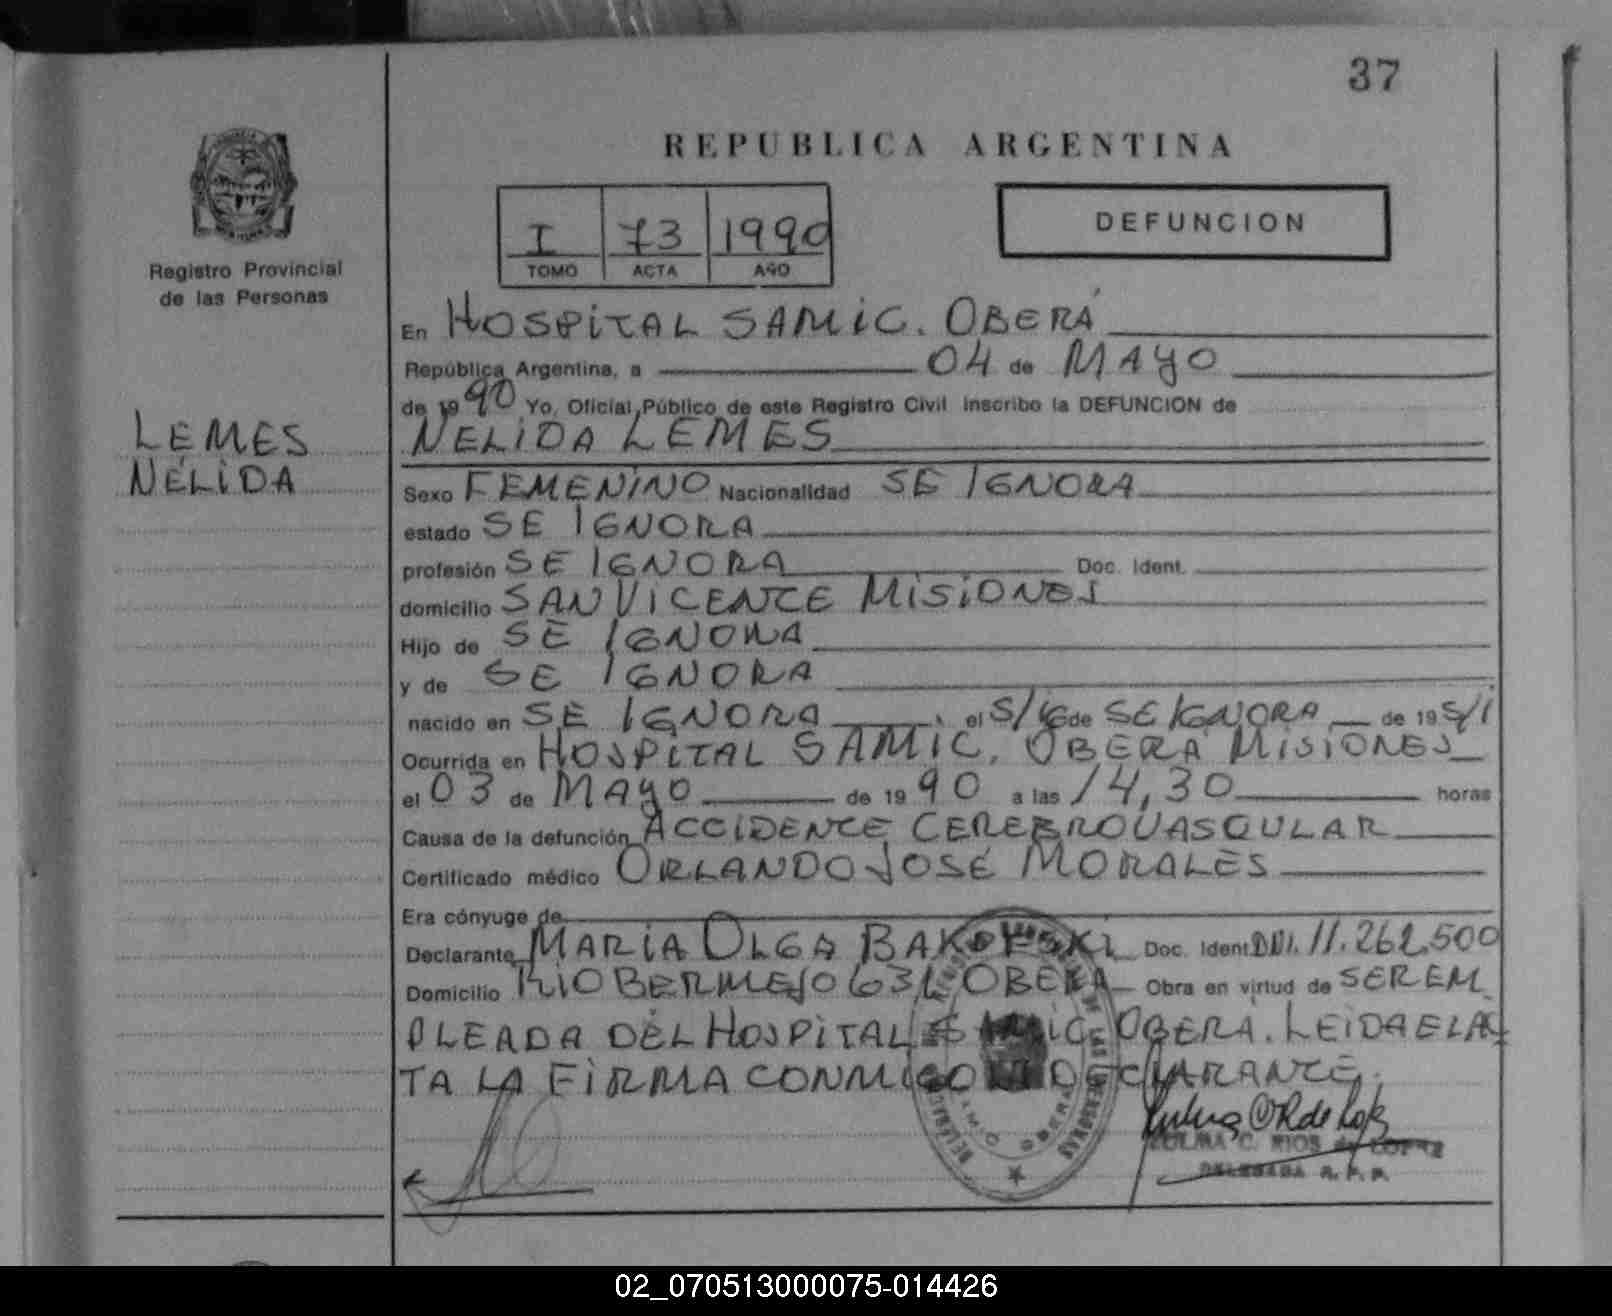 37
REPUBLICA ARGENTINA
I 73 1990
TOMO ACTA AÑO
DEFUNCION
Registro Provincial
de las Personas
LEMES
NÉLIDA
En HOSPITAL SAMIC. OBERÁ
República Argentina, a 04 de MAYO
de 1990 Yo, Oficial Público de este Registro Civil inscribo la DEFUNCION de
NELIDA LEMES
Sexo FEMENINO Nacionalidad SE IGNORA
estado SE IGNORA
profesión SE IGNORA Doc. Ident.
domicilio SAN VICENTE MISIONES
Hijo de SE IGNORA
y de SE IGNORA
nacido en SE IGNORA, el S/IG de SE IGNORA de 19 S/I
Ocurrida en HOSPITAL SAMIC, OBERÁ MISIONES
el 03 de MAYO de 1990 a las 14,30 horas
Causa de la defunción ACCIDENTE CEREBROVASQULAR
Certificado médico ORLANDO JOSÉ MORALES
Era cónyuge de
Declarante MARIA OLGA Doc. Ident. DNI. 11.262.500
Domicilio RIO BERMEJO 631 OBERÁ Obra en virtud de SER EM
PLEADA DEL HOSPITAL SAMIC OBERÁ. LEIDA EL AC
TA LA FIRMA CONMIGO LA DECLARANTE.
C. RIOS de LOPEZ
DELEGADA R. P. P.
02_070513000075-014426